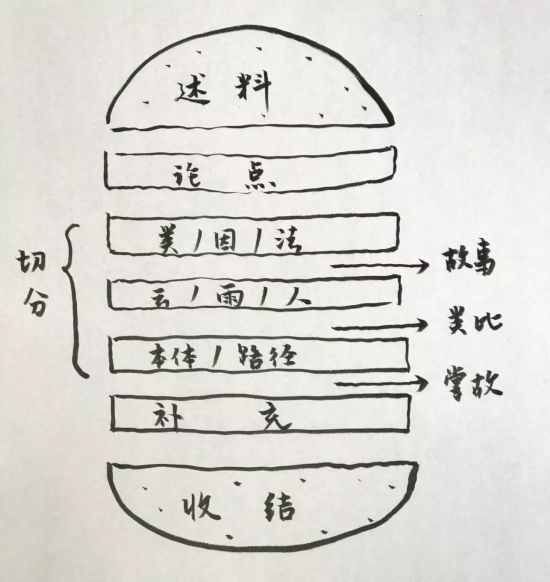 述料
论点
类/因/法
故事
切分
云/雨/人
类比
本体/路径
掌故
补充
收结